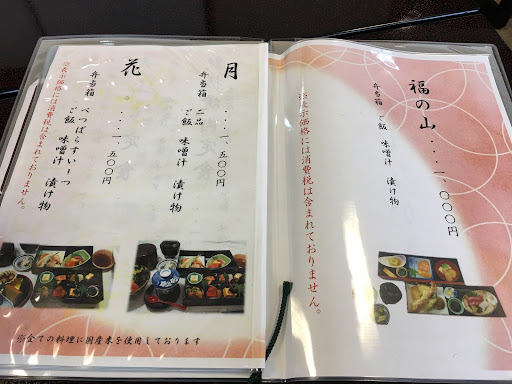 福の山・・・一、〇〇〇円
弁当箱 ご飯 味噌汁 漬け物
※表示価格には消費税は含まれておりません。
月・・・一、五〇〇円
弁当箱 二品 ご飯 味噌汁 漬け物
花・・・一、五〇〇円
弁当箱 くつばらすいーつ
ご飯 味噌汁 漬け物
※表示価格には消費税は含まれておりません。
※全ての料理に国産米を使用しております